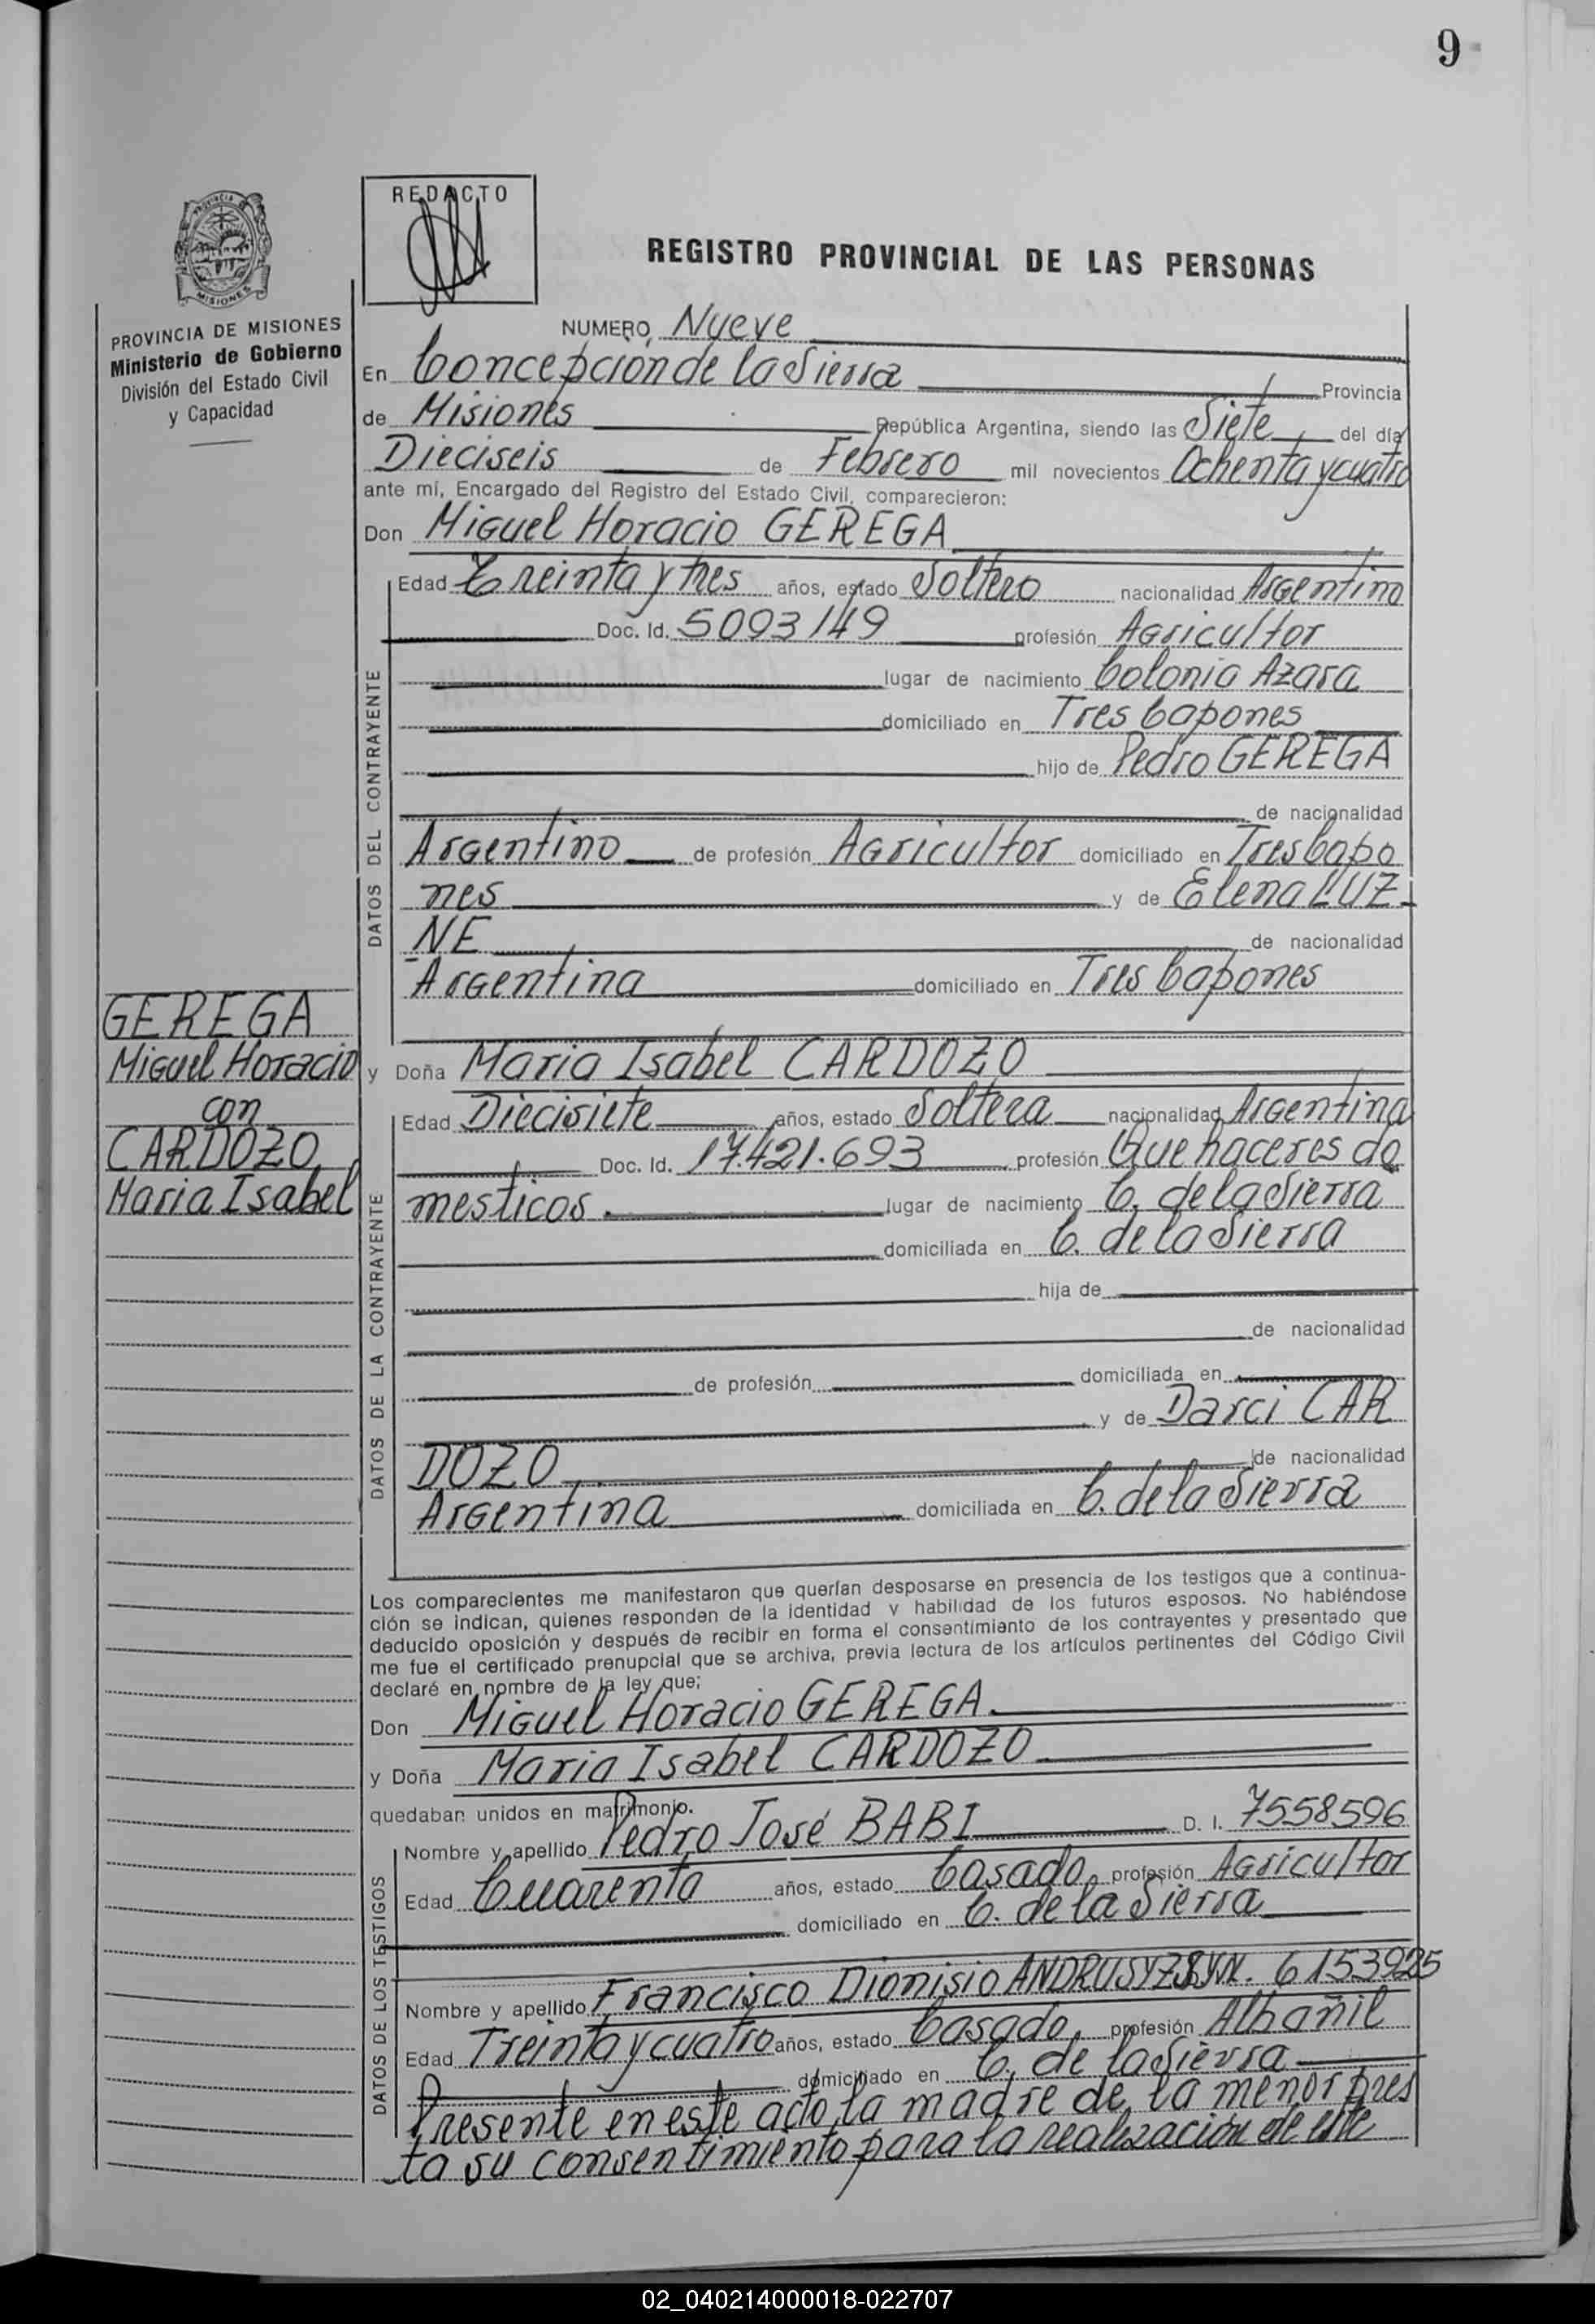 9
REDACTO
REGISTRO PROVINCIAL DE LAS PERSONAS
PROVINCIA DE MISIONES
Ministerio de Gobierno
División del Estado Civil
y Capacidad
NUMERO Nueve
En Concepción de la Sierra Provincia
de Misiones República Argentina, siendo las Siete del día
Dieciseis de Febrero mil novecientos Ochenta y cuatro
ante mí, Encargado del Registro del Estado Civil, comparecieron:
Don Miguel Horacio GEREGA
Edad Treinta y tres años, estado Soltero nacionalidad Argentino
Doc. Id. 5093149 profesión Agricultor
lugar de nacimiento Colonia Azara
domiciliado en Tres Capones
hijo de Pedro GEREGA
de nacionalidad
Argentino de profesión Agricultor domiciliado en Tres Capo
nes y de Elena LUZ-
NE de nacionalidad
Argentina domiciliado en Tres Capones
DATOS DEL CONTRAYENTE
GEREGA
Miguel Horacio
con
CARDOZO
Maria Isabel
y Doña Maria Isabel CARDOZO
Edad Diecisiete años, estado Soltera nacionalidad Argentina
Doc. Id. 17.421.693 profesión Que haceres do
mesticos. lugar de nacimiento C. de la Sierra
domiciliada en C. de la Sierra
hija de
de nacionalidad
de profesión domiciliada en
y de Darci CAR
DOZO de nacionalidad
Argentina domiciliada en C. de la Sierra
DATOS DE LA CONTRAYENTE
Los comparecientes me manifestaron que querían desposarse en presencia de los testigos que a continua-
ción se indican, quienes responden de la identidad y habilidad de los futuros esposos. No habiéndose
deducido oposición y después de recibir en forma el consentimiento de los contrayentes y presentado que
me fue el certificado prenupcial que se archiva, previa lectura de los artículos pertinentes del Código Civil
declaré en nombre de la ley que;
Don Miguel Horacio GEREGA.
y Doña Maria Isabel CARDOZO
quedaban unidos en matrimonio.
Nombre y apellido Pedro José BABI D. I. 7558596
Edad Cuarenta años, estado Casado profesión Agricultor
domiciliado en C. de la Sierra
Nombre y apellido Francisco Dionisio 6153925
Edad Treinta y cuatro años, estado Casado profesión Albañil
domiciliado en C. de la Sierra
DATOS DE LOS TESTIGOS
Presente en este acto la madre de la menor pres
ta su consentimiento para la realización de este
02_040214000018-022707